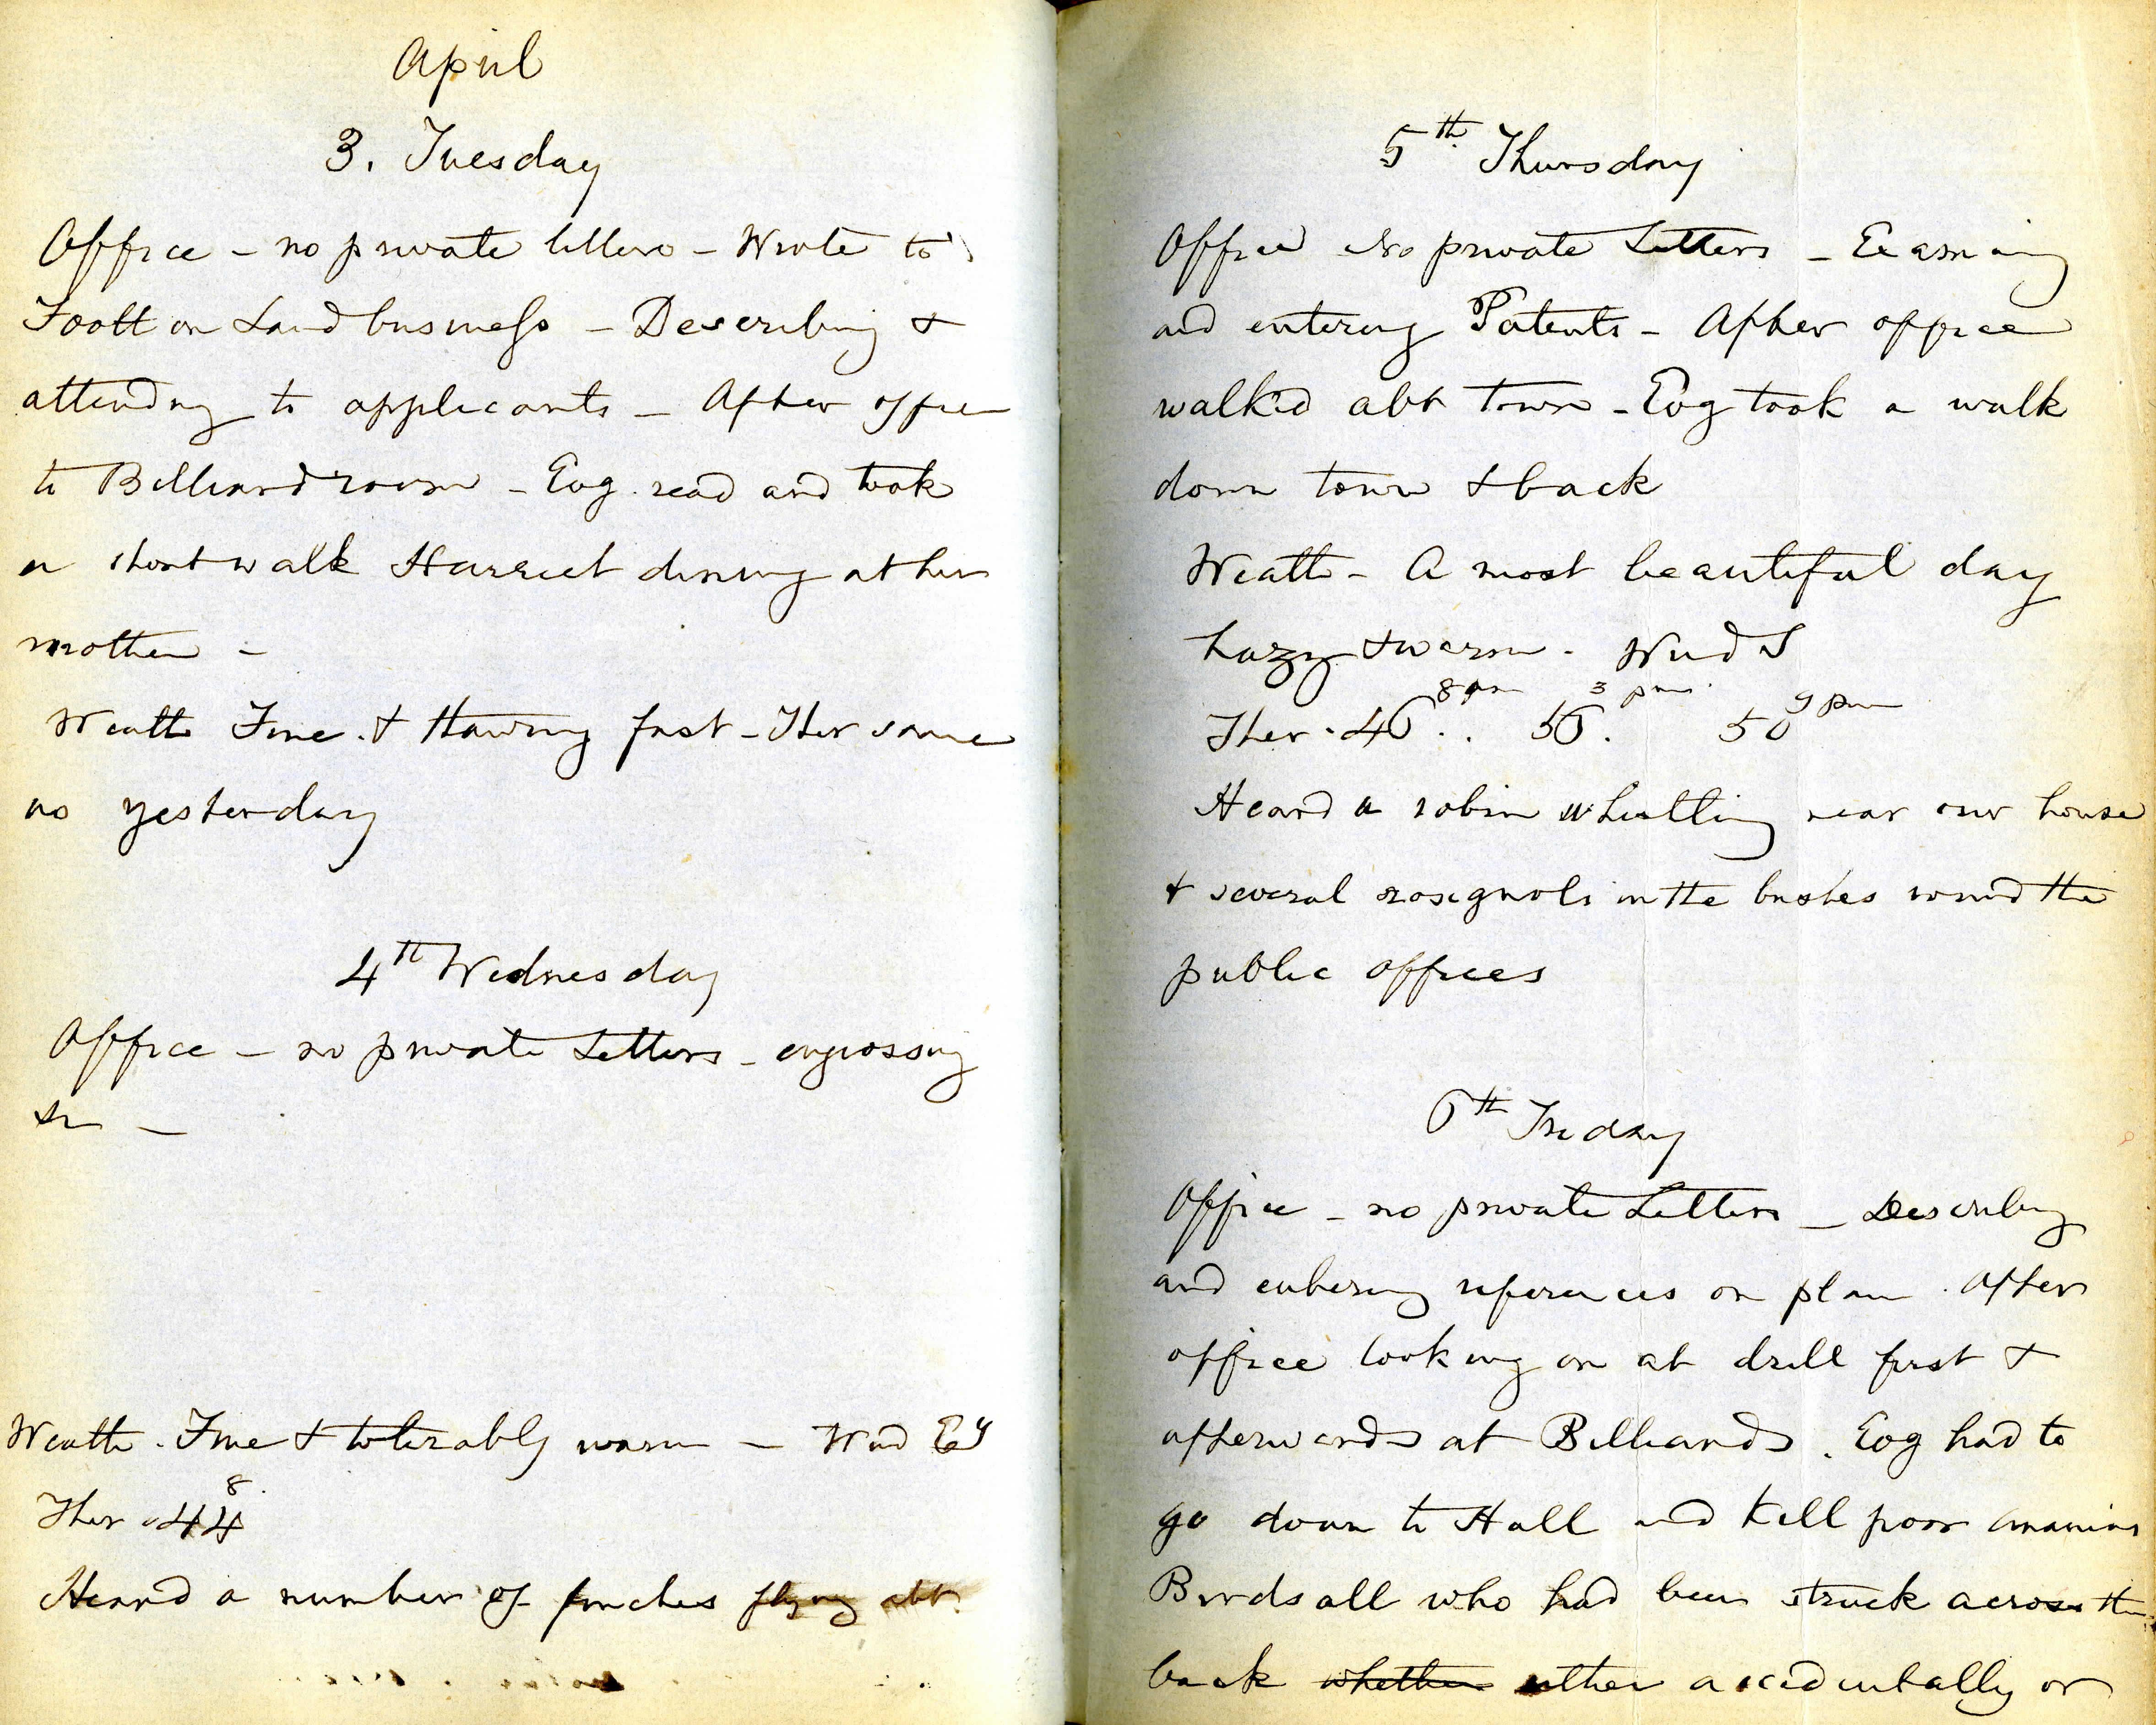 April
3. Tuesday
Office - no private letters - Wrote to
Foott on Land business - Describing &
attending to applicants - After office
to Billiard room - Evg. read and took
a short walk Harriet dining at her
mother -
Weath Fine. & thawing fast - Ther same
as yesterday
4th Wednesday
Office - no private Letters - engrossing
&c -
Weath. Fine & tolerably warm - Wind Ey
Ther. 44 8
Heard a number of finches flying abt.
5th Thursday
Office No private Letters - Examining
and entering Patents - After office
walked abt town - Evg took a walk
down town & back
Weath - A most beautiful day
hazy & warm. Wind S
8 am 3 pm. 9 pm
Ther. 46 .. 56. 50
Heard a robin whistling near our house
& several rosignols in the bushes round the
public offices
6th Friday
Office - no private Letters - Describing
and entering references on plan. After
office looking on at drill first &
afterwards at Billiards. Evg had to
go down to Hall and kill poor
Birdsall who had been struck across the
back whether either accidentally or